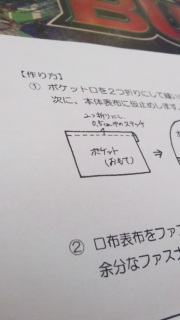 【作り方】
① ポケット口を2つ折りにして縫い
次に、本体表布に仮止めします
2つ折りにし
0.5cm中のステッチ
ポケット
(おもて)
② 口布表布をファス
余分なファスナ